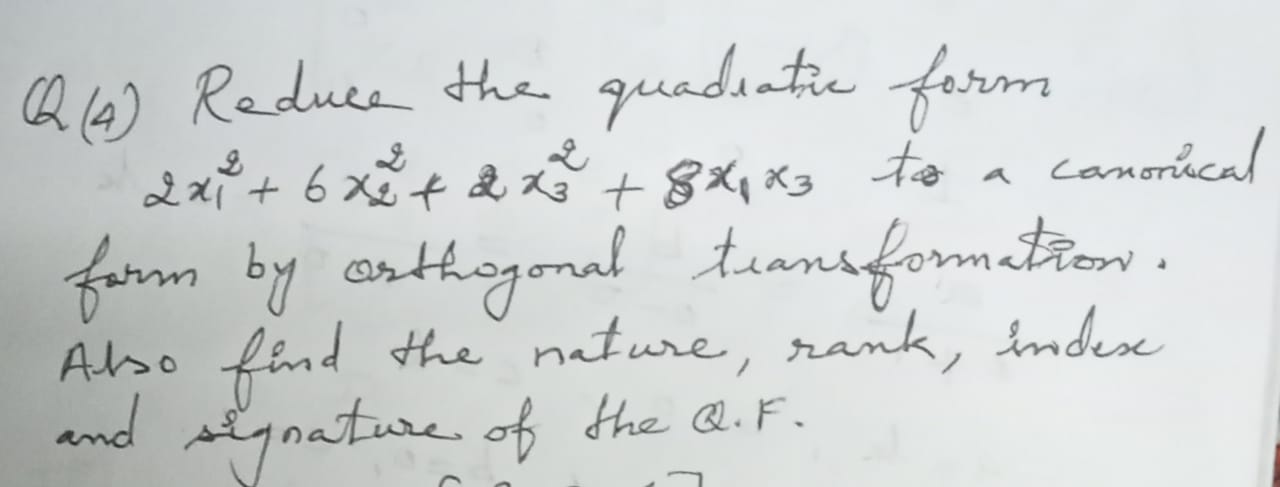 Q(4) Reduce the quadratic form
2x₁² + 6x₂² + 2x₃² + 8x₁x₃ to a canonical
form by orthogonal transformation.
Also find the nature, rank, index
and signature of the Q.F.